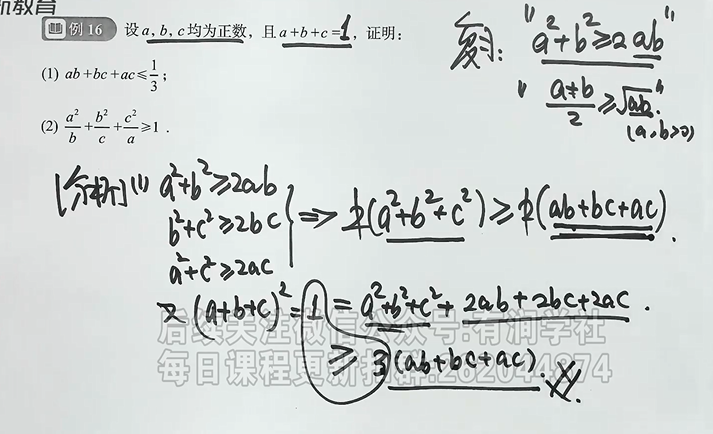 教育
例 16 设 a, b, c 均为正数，且 a+b+c=1，证明：
(1) ab+bc+ac≤1/3；
(2) a²/b+b²/c+c²/a≥1．
复习： "a²+b²≥2ab"
"(a+b)/2≥√ab" (a,b>0)
[分析] (1) a²+b²≥2ab
b²+c²≥2bc
a²+c²≥2ac
⇒ 2(a²+b²+c²)≥2(ab+bc+ac).
又 (a+b+c)²=1=a²+b²+c²+2ab+2bc+2ac.
≥3(ab+bc+ac).
后续关注微信公众号:有润学社
每日课程更新